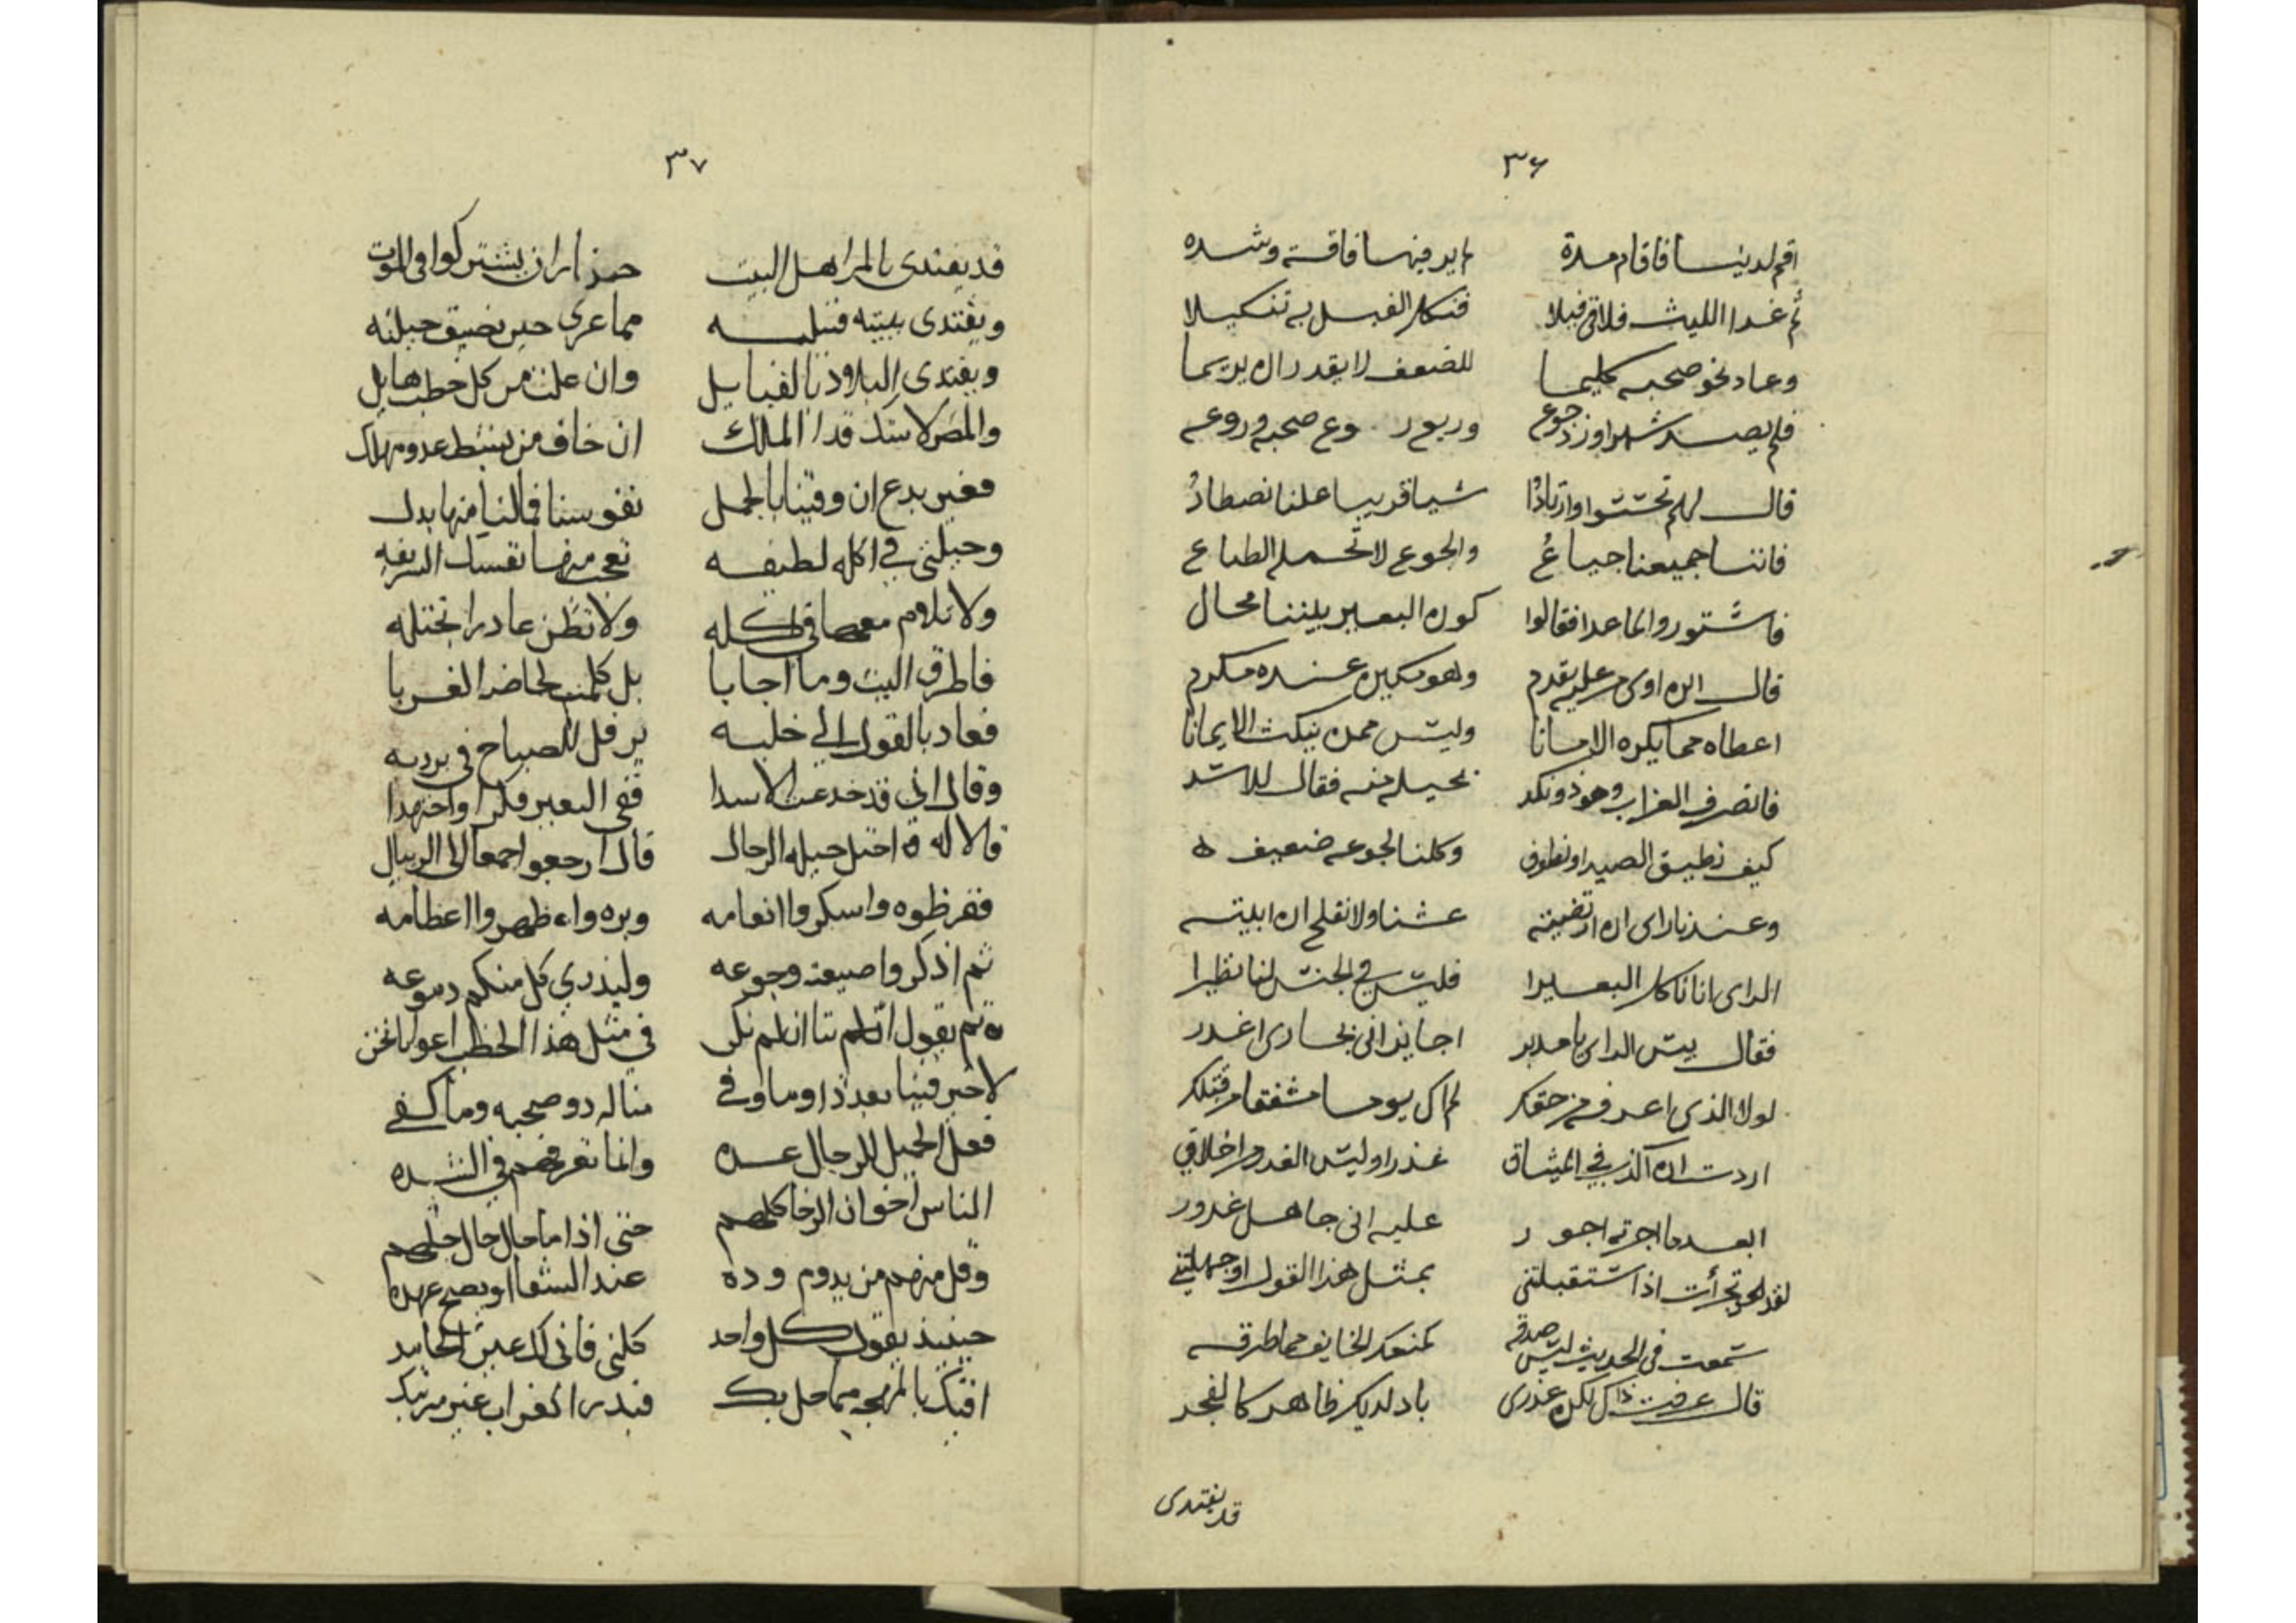 ٣٦
اقم لدينا فاقام مدة لم ير فيها فاقة وشده
ثم غدا الليث فلاقى فيلا فنكل الفيل به تنكيلا
وعاد نحو صحبه كليما للضعف لا يقدر ان يريما
فلم يصد شهرا وزد جوع وربع صحبه وروعه
قال لهم تحتثوا وارتادُا شيا قريبا علنا نصطادُ
فاننا جميعنا جياعُ والجوع لا تحمله الطباع
فاشتوروا لما عدا فقالوا كون البعير بيننا محال
قال ابن اوى من عليه يقدم وهو مكين عنده مكرم
اعطاه مما يكره الامانا وليس ممن ينكث الايمانا
فانصرف الغراب وهو ذو نكد بحيلة منه فقال للاسد
كيف نطيق الصيد او نطوف وكلنا لجوعه ضعيف
وعندنا راى ان ارتضيته عشنا ولا نفلح ان ابيته
الراى اننا ناكل البعيرا فليس في الجنس لنا نظيرا
فقال بيس الراى يا مدبر اجايز انى بجارى اغدر
لولا الذى اعرف من حقكر لم اك يوما مشفقا من قتلكر
اردت ان اكذب في الميثاق غدرا وليس الغدر من اخلاقي
ابعد ما اجرته اجور عليه انى جاهل غدور
لقد تجرأت اذ استقبلتنى بمثل هذا القول او جهلتني
سمعت فى الحديث ليس صدقه كمنعك الخايف مما طرقه
قال عرفت ذاك لكن عذرى باد لديك ظاهر كالفجر
قد يفتدى
٣٧
قد يفتدى بالمرا اهل البيت حذار ان يشتركوا في الموت
ويفتدى ببيته قبيله مما عرى حين تضيق حيلته
ويفتدى البلاد بالقبايل وان علت من كل خطب هايل
والمصر لا شك فدا الملك ان خاف من بسط عدو مهلك
فغير بدع ان وقينا بالجمل نفوسنا فما لنا منها بدل
وحيلتى في اكله لطيفه تعجب منها نفسك الشريفه
ولا تلام معها في اكله ولا تظن غادرا بختله
فاطرق الليث وما اجابا بل كلمت لحاضر الغرابا
فعاد بالقول الي خليه يرفل للصباح في برديه
وقال اني قد خدعت الاسدا ففي البعير فكرا واجتهدا
قالا له احتل حيلة الرجال قال ارجعوا اجمعا الى الريبال
فقرظوه واشكروا انعامه وبره واظهروا اعظامه
ثم اذكروا ضيعته وجوعه وليذري كل منكم دموعه
ثم يقول الم تنا ان لم نكن في مثل هذا الخطب اعوانا فمن
لا خير فينا بعد ذا وما وفي مناله ذو صحبه وما كفي
فعل الجميل للرجال عده وانما تعرفهم في الشده
الناس اخوان الرخا كلهم حتى اذا ما حال حال حلهم
وقل منهم من يدوم وده عند الشقا او يصح عهده
حينيذ يقول كل واحد كلني فاني لك عين الحامد
افيك بالمهجه مما حل بك فيدر الغراب غير مرتبك